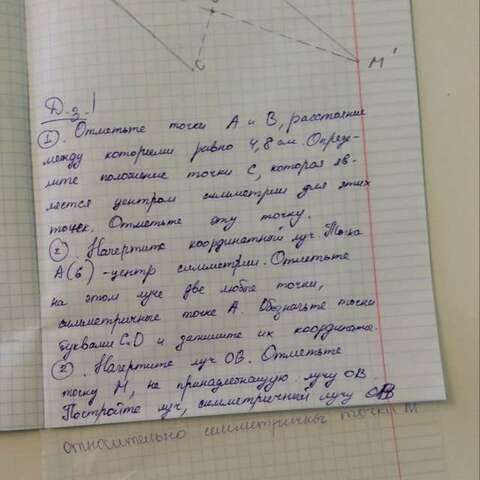 C
M'
Д.з.!
①. Отметьте точки А и В, расстояние
между которыми равно 4,8 см. Опреде-
лите положение точки С, которая яв-
ляется центром симметрии для этих
точек. Отметьте эту точку.
②. Начертите координатный луч. Точка
А(6) - центр симметрии. Отметьте
на этом луче две любые точки,
симметричные точке А. Обозначьте точки
буквами С и D и запишите их координаты.
②. Начертите луч ОВ. Отметьте
точку М, не принадлежащую лучу ОВ
Постройте луч, симметричный лучу ОВ
относительно симметричны точки М